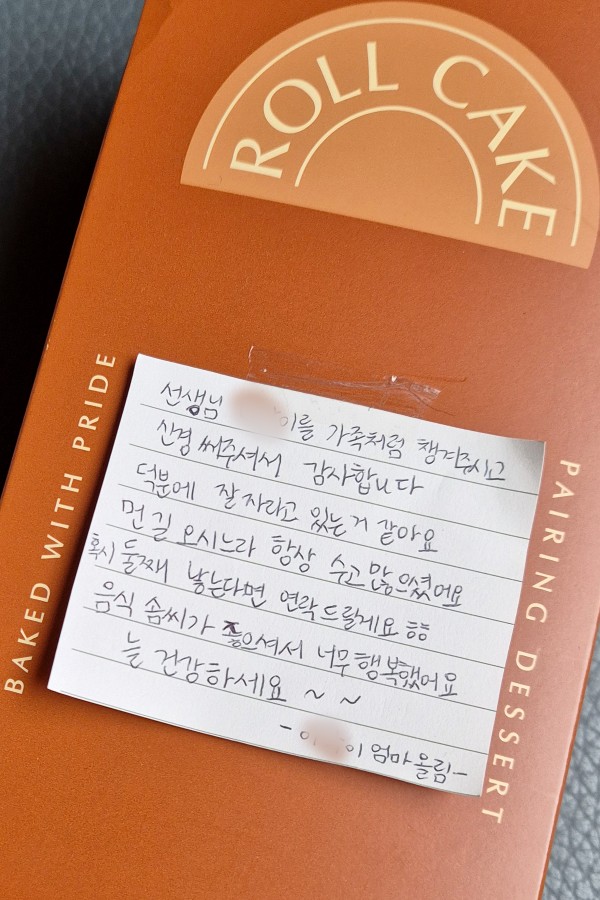 ROLL CAKE
BAKED WITH PRIDE
PAIRING DESSERT
선생님 이를 가족처럼 챙겨주시고
신경 써주셔서 감사합니다
덕분에 잘 자라고 있는거 같아요
먼 길 오시느라 항상 수고 많으셨어요
혹시 둘째 낳는다면 연락드릴게요 ㅎㅎ
음식 솜씨가 좋으셔서 너무 행복했어요
늘 건강하세요 ~ ~
- 이 엄마 올림-